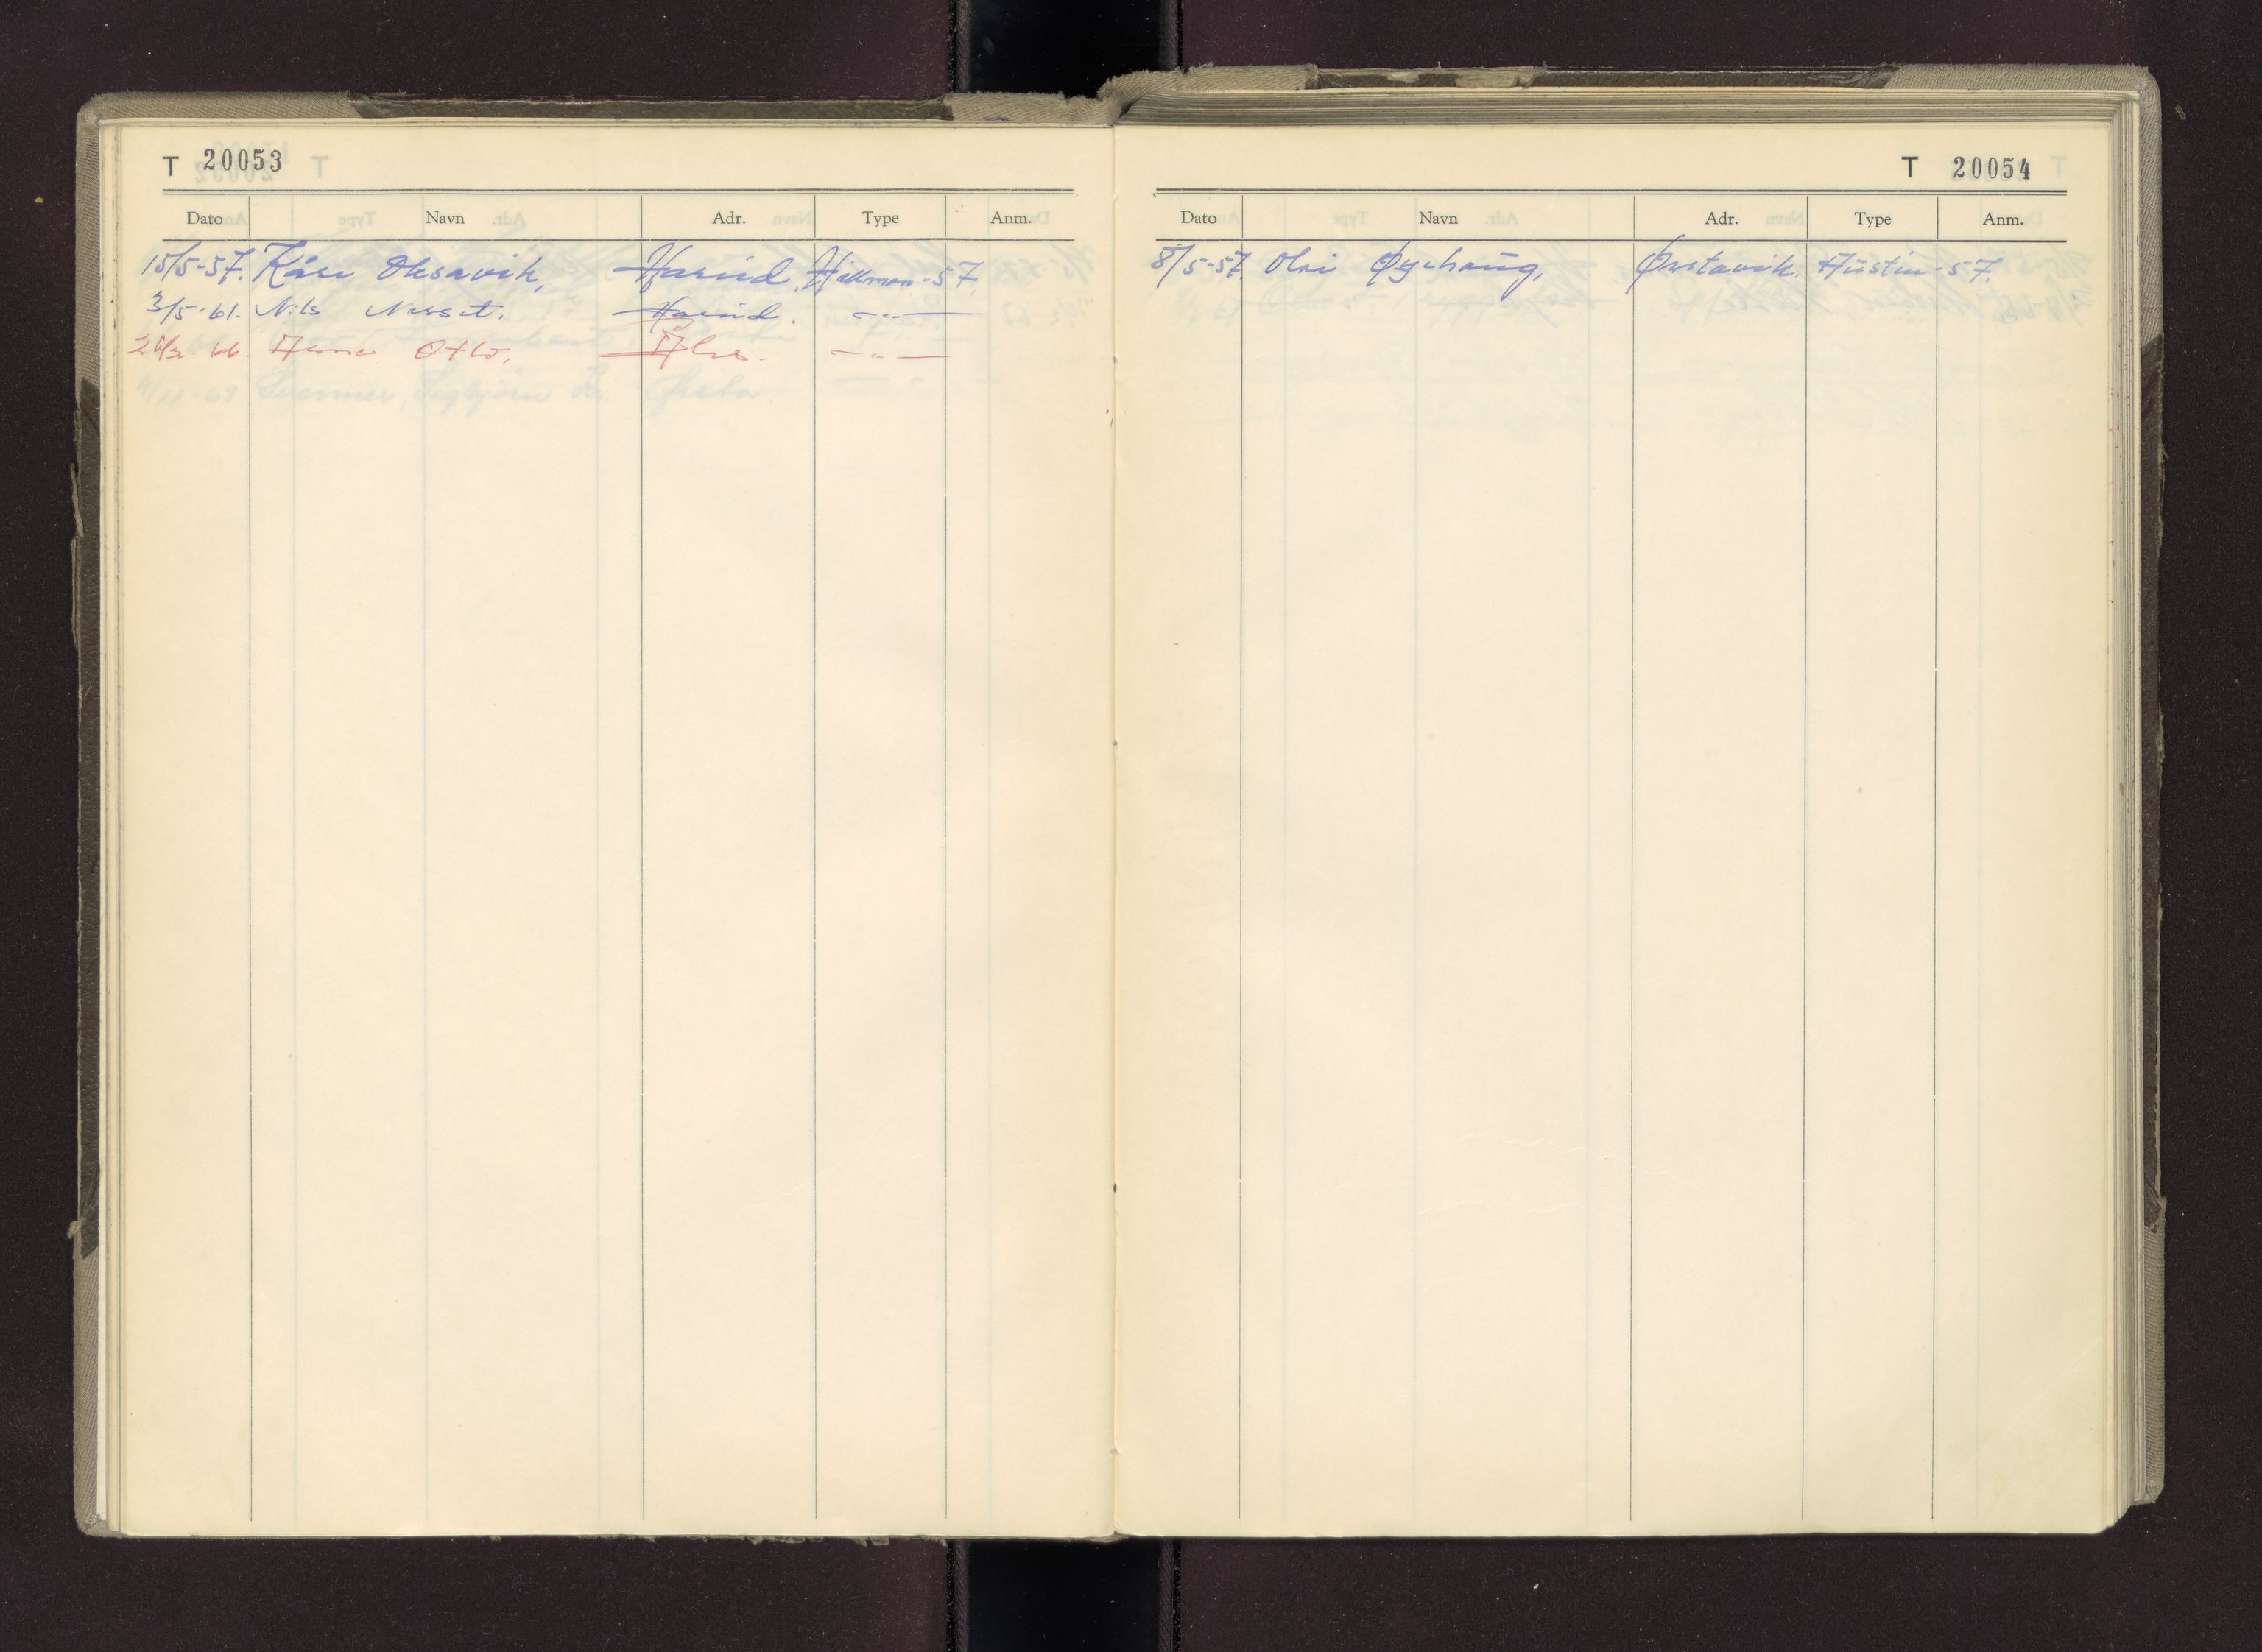 T 20053
Dato Navn Adr. Type Anm.
15/5-57. Kåre Oksavik, Hareid. Hillman-57.
3/5-61. Nils Nesset. Hareid. -"-
Otto,
T 20054
Dato Navn Adr. Type Anm.
8/5-57. Olai Øyehaug, Ørstavik. Austin-57.